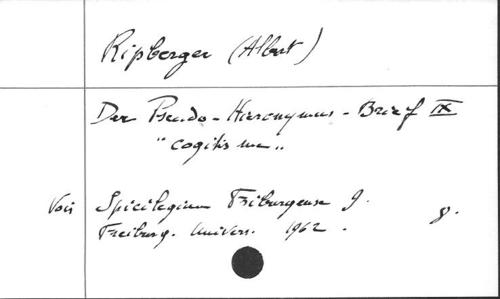 Ripberger (Albert)
Der Pseudo-Hieronymus-Brief IX
"cogitis me„
Voir Spicilegium Friburgense 9.
Freiburg. Univers. 1962. 8.